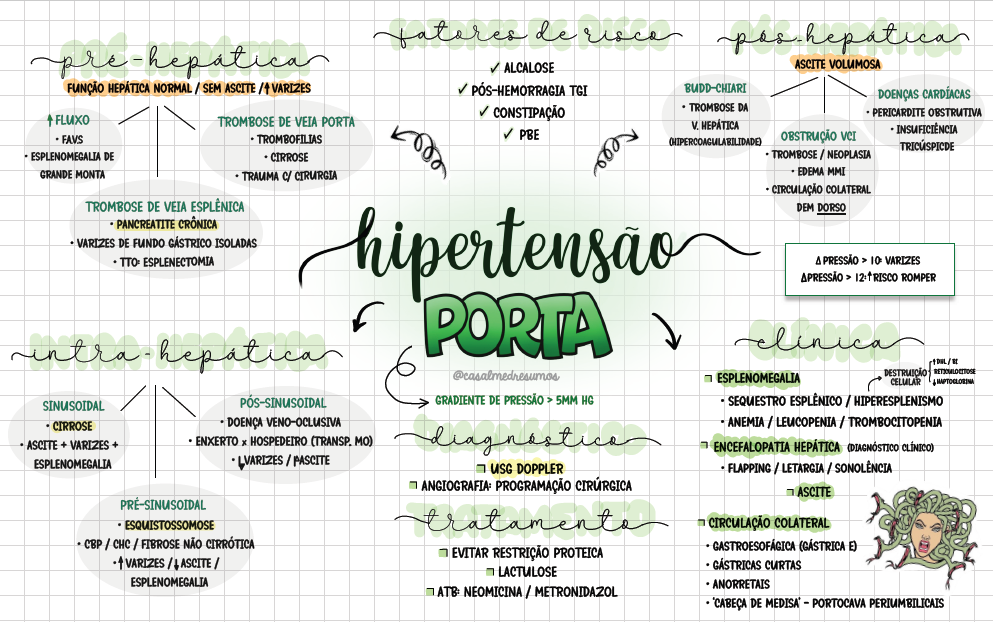 pré-hepática
FUNÇÃO HEPÁTICA NORMAL / SEM ASCITE /↑ VARIZES
↑ FLUXO
• FAVS
• ESPLENOMEGALIA DE
GRANDE MONTA
TROMBOSE DE VEIA PORTA
• TROMBOFILIAS
• CIRROSE
• TRAUMA C/ CIRURGIA
TROMBOSE DE VEIA ESPLÊNICA
• PANCREATITE CRÔNICA
• VARIZES DE FUNDO GÁSTRICO ISOLADAS
• TTO: ESPLENECTOMIA
fatores de risco
✓ ALCALOSE
✓ PÓS-HEMORRAGIA TGI
✓ CONSTIPAÇÃO
✓ PBE
pós-hepática
ASCITE VOLUMOSA
BUDD-CHIARI
• TROMBOSE DA
V. HEPÁTICA
(HIPERCOAGULABILIDADE)
OBSTRUÇÃO VCI
• TROMBOSE / NEOPLASIA
• EDEMA MMI
• CIRCULAÇÃO COLATERAL
DEM DORSO
DOENÇAS CARDÍACAS
• PERICARDITE OBSTRUTIVA
• INSUFICIÊNCIA
TRICÚSPICDE
hipertensão
PORTA
@casalmedresumos
GRADIENTE DE PRESSÃO > 5MM HG
Δ PRESSÃO > 10: VARIZES
ΔPRESSÃO > 12:↑RISCO ROMPER
intra-hepática
SINUSOIDAL
• CIRROSE
• ASCITE + VARIZES +
ESPLENOMEGALIA
PÓS-SINUSOIDAL
• DOENÇA VENO-OCLUSIVA
• ENXERTO x HOSPEDEIRO (TRANSP. MO)
• ↓VARIZES / ↑ASCITE
PRÉ-SINUSOIDAL
• ESQUISTOSSOMOSE
• CBP / CHC / FIBROSE NÃO CIRRÓTICA
• ↑ VARIZES /↓ ASCITE /
ESPLENOMEGALIA
diagnóstico
USG DOPPLER
ANGIOGRAFIA: PROGRAMAÇÃO CIRÚRGICA
tratamento
EVITAR RESTRIÇÃO PROTEICA
LACTULOSE
ATB: NEOMICINA / METRONIDAZOL
clínica
ESPLENOMEGALIA
DESTRUIÇÃO
CELULAR
↑ DHL / BI
RETICULOCITOSE
↓ HAPTOGLOBINA
• SEQUESTRO ESPLÊNICO / HIPERESPLENISMO
• ANEMIA / LEUCOPENIA / TROMBOCITOPENIA
ENCEFALOPATIA HEPÁTICA (DIAGNÓSTICO CLÍNICO)
• FLAPPING / LETARGIA / SONOLÊNCIA
ASCITE
CIRCULAÇÃO COLATERAL
• GASTROESOFÁGICA (GÁSTRICA E)
• GÁSTRICAS CURTAS
• ANORRETAIS
• "CABEÇA DE MEDISA" - PORTOCAVA PERIUMBILICAIS